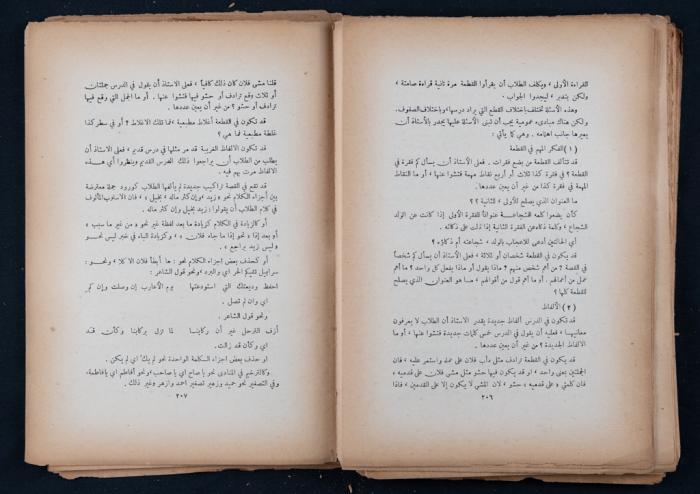 للقراءة الأولى ، ويكلف الطلاب أن يقرأوا القطعة مرة ثانية قراءة صامتة
ولكن بتدبر ، ليجدوا الجواب .
وهذه الأسئلة تختلف باختلاف القطع التي يراد درسها ، وباختلاف الصفوف .
ولكن هناك مبادىء عمومية يجب أن تبنى الأسئلة عليها يجدر بالأستاذ أن
يعيرها جانب اهتمامه . وهي كما يأتي :
( ١ ) الفكر المهم في القطعة
قد تتألف القطعة من بضع فقرات . فعلى الأستاذ أن يسأل كم فقرة في
القطعة ؟ في فقرة كذا ثلاث أو أربع نقاط مهمة فتشوا عنها ، أو ما النقاط
المهمة في فقرة كذا من غير أن يعين عددها .
ما العنوان الذي يصلح للأولى ، للثانية ؟ ؟
كأن يضعوا كلمة الشجاعة عنواناً للفقرة الأولى إذا كانت عن الولد
الشجاع ، وكلمة ذكاء عن الفقرة الثانية إذا دلت على ذكائه .
أي الحالتين أدعى للاعجاب بالولد ، شجاعته أم ذكاؤه ؟
قد يكون في القطعة شخصان أو ثلاثة ، فعلى الأستاذ أن يسأل كم شخصاً
في القصة ؟ من أهم شخص منهم ؟ ماذا يقول أو ماذا يفعل كل واحد ؟ ما أهم
عمل من أعمالهم . أو ما أهم قول من أقوالهم ، مـا هو العنوان الذي يصلح
للقطعة كلها ؟
( ٢ ) الألفاظ
قد تكون في الدرس ألفاظ جديدة يقدر الأستاذ أن الطلاب لا يعرفون
معانيها ، فعليه أن يقول في الدرس خمس كلمات جديدة فتشوا عنها ، أو ما
الالفاظ الجديدة ؟ من غير أن يعين عددها .
قد يكون في القطعة ترادف مثل دأب فلان على عمله واستمر عليه ، فان
الجملتين بمعنى واحد ، او قد يكون فيها حشو مثل مشى فلان على قدميه ، فان
فان كلمتي ، على قدميه ، حشو ، لان المشي لا يكون إلا على القدمين ، فاذا
٢٠٦
قلنا مشى فلان كان ذلك كافياً ، فعلى الاستاذ أن يقول في الدرس جملتان
أو ثلاث وقع ترادف أو حشو فيها فتشوا عنها . أو ما الجمل التي وقع فيها
ترادف أو حشو ؟ من غير أن يعين عددها .
قد تكون في القطعة أغلاط مطبعية ، فما تلك الاغلاط ؟ أو في سطر كذا
غلطة مطبعية فما هي ؟
قد تكون الالفاظ الغريبة قد مر مثلها في درس قديم ، فعلى الاستاذ أن
يطلب من الطلاب أن يراجعوا ذلك الدرس القديم وينظروا أي هـذه
الالفاظ مرت بهم فيه .
قد تقع في القصة تراكيب جديدة لم يألفها الطلاب كورود جملة معترضة
بين أجزاء الكلام نحو ، زيد ، وإن كثر ماله ، بخيل ، ، فان الاسلوب المألوف
في كلام الطلاب أن يقولوا : زيد بخيل وإن كثر ماله .
أو كالزيادة في الكلام كزيادة ما بعد لفظة غير نحو ، من غير ما سبب ،
أو بعد إذا ، نحو إذا ما جاء فلان ، ، وكزيادة الباء في خبر ليس نحـو
، ليس زيد براجع ، .
أو كحذف بعض اجزاء الكلام نحو : ما أبطأ فلان الا كلا ، ونحـو :
سرابيل تقيكم الحر اي والبرد ، ونحو قول الشاعر :
احفظ وديعتك التي استودعتها يوم الأعارب إن وصلت وإن لم
اي وان لم تصل .
ونحو قول الشاعر .
أزف الترحل غير أن ركابنـا لما تزل برحالنا وكأن قـد
اي وكأن قد زالت .
او حذف بعض اجزاء الـكلمة الواحدة نحو لم يك ، اي لم يكن .
وكالترخيم في المنادى نحو يا صاح اي يا صاحب ، ونحو أفاطم اي يا فاطمة ،
وفي التصغير نحو حميد وزهير تصغير احمد وازهر وغير ذلك .
٢٠٧